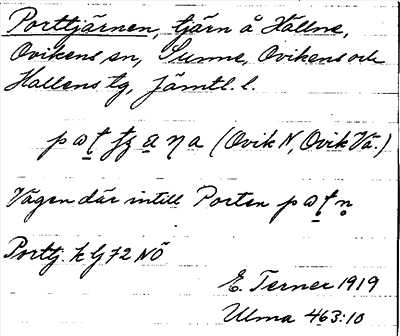 Porttjärnen, tjärn å Hällne,
Ovikens sn, Sunne, Ovikens och
Hallens tg, Jämtl. l.
(Ovik N, Ovik Vä.)
Vägen där intill Porten
Porttj. k bj 72 NÖ
E. Terner 1919
Ulma 463:10